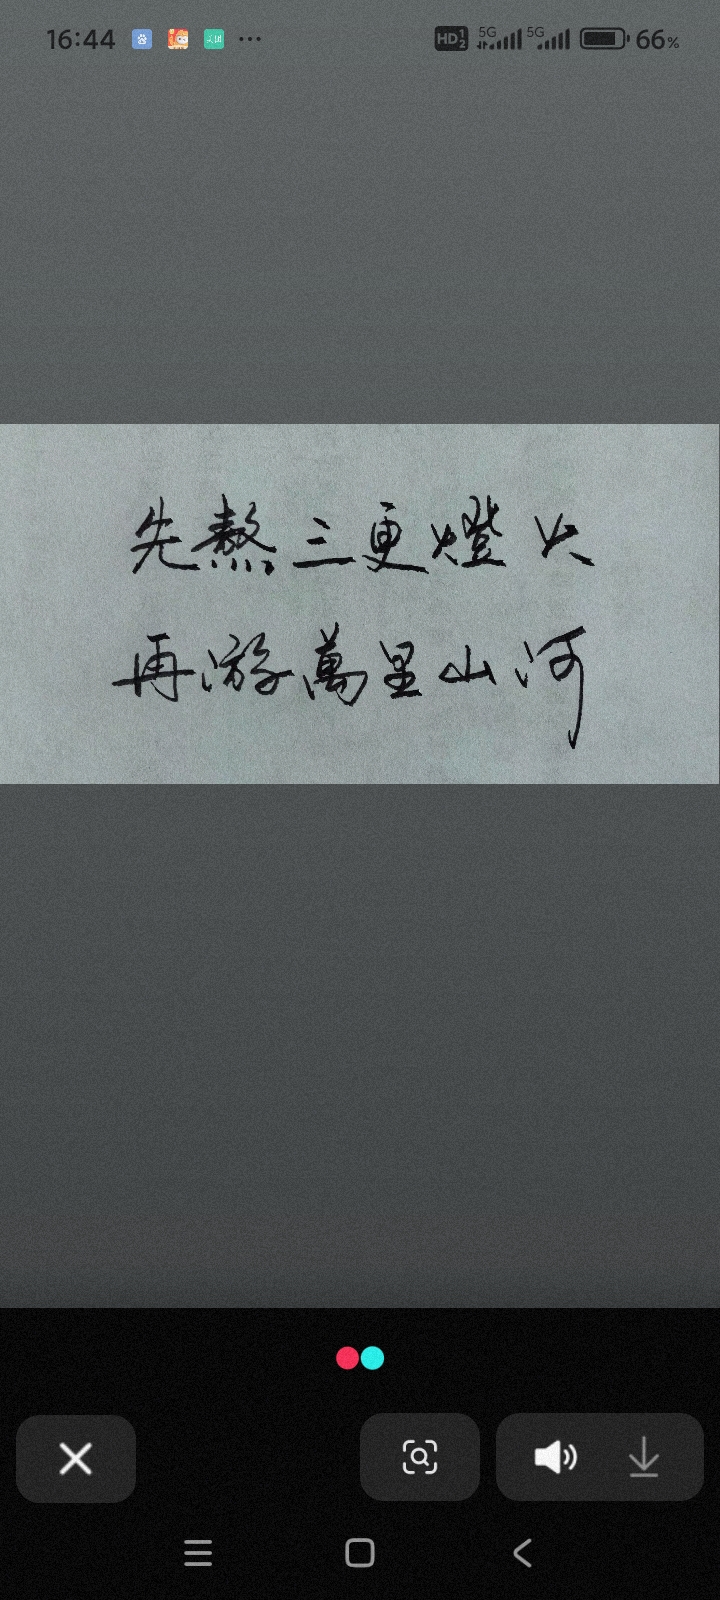 16:44 ... HD 1 2 5G 5G 66%
先熬三更燈火
再游萬里山河